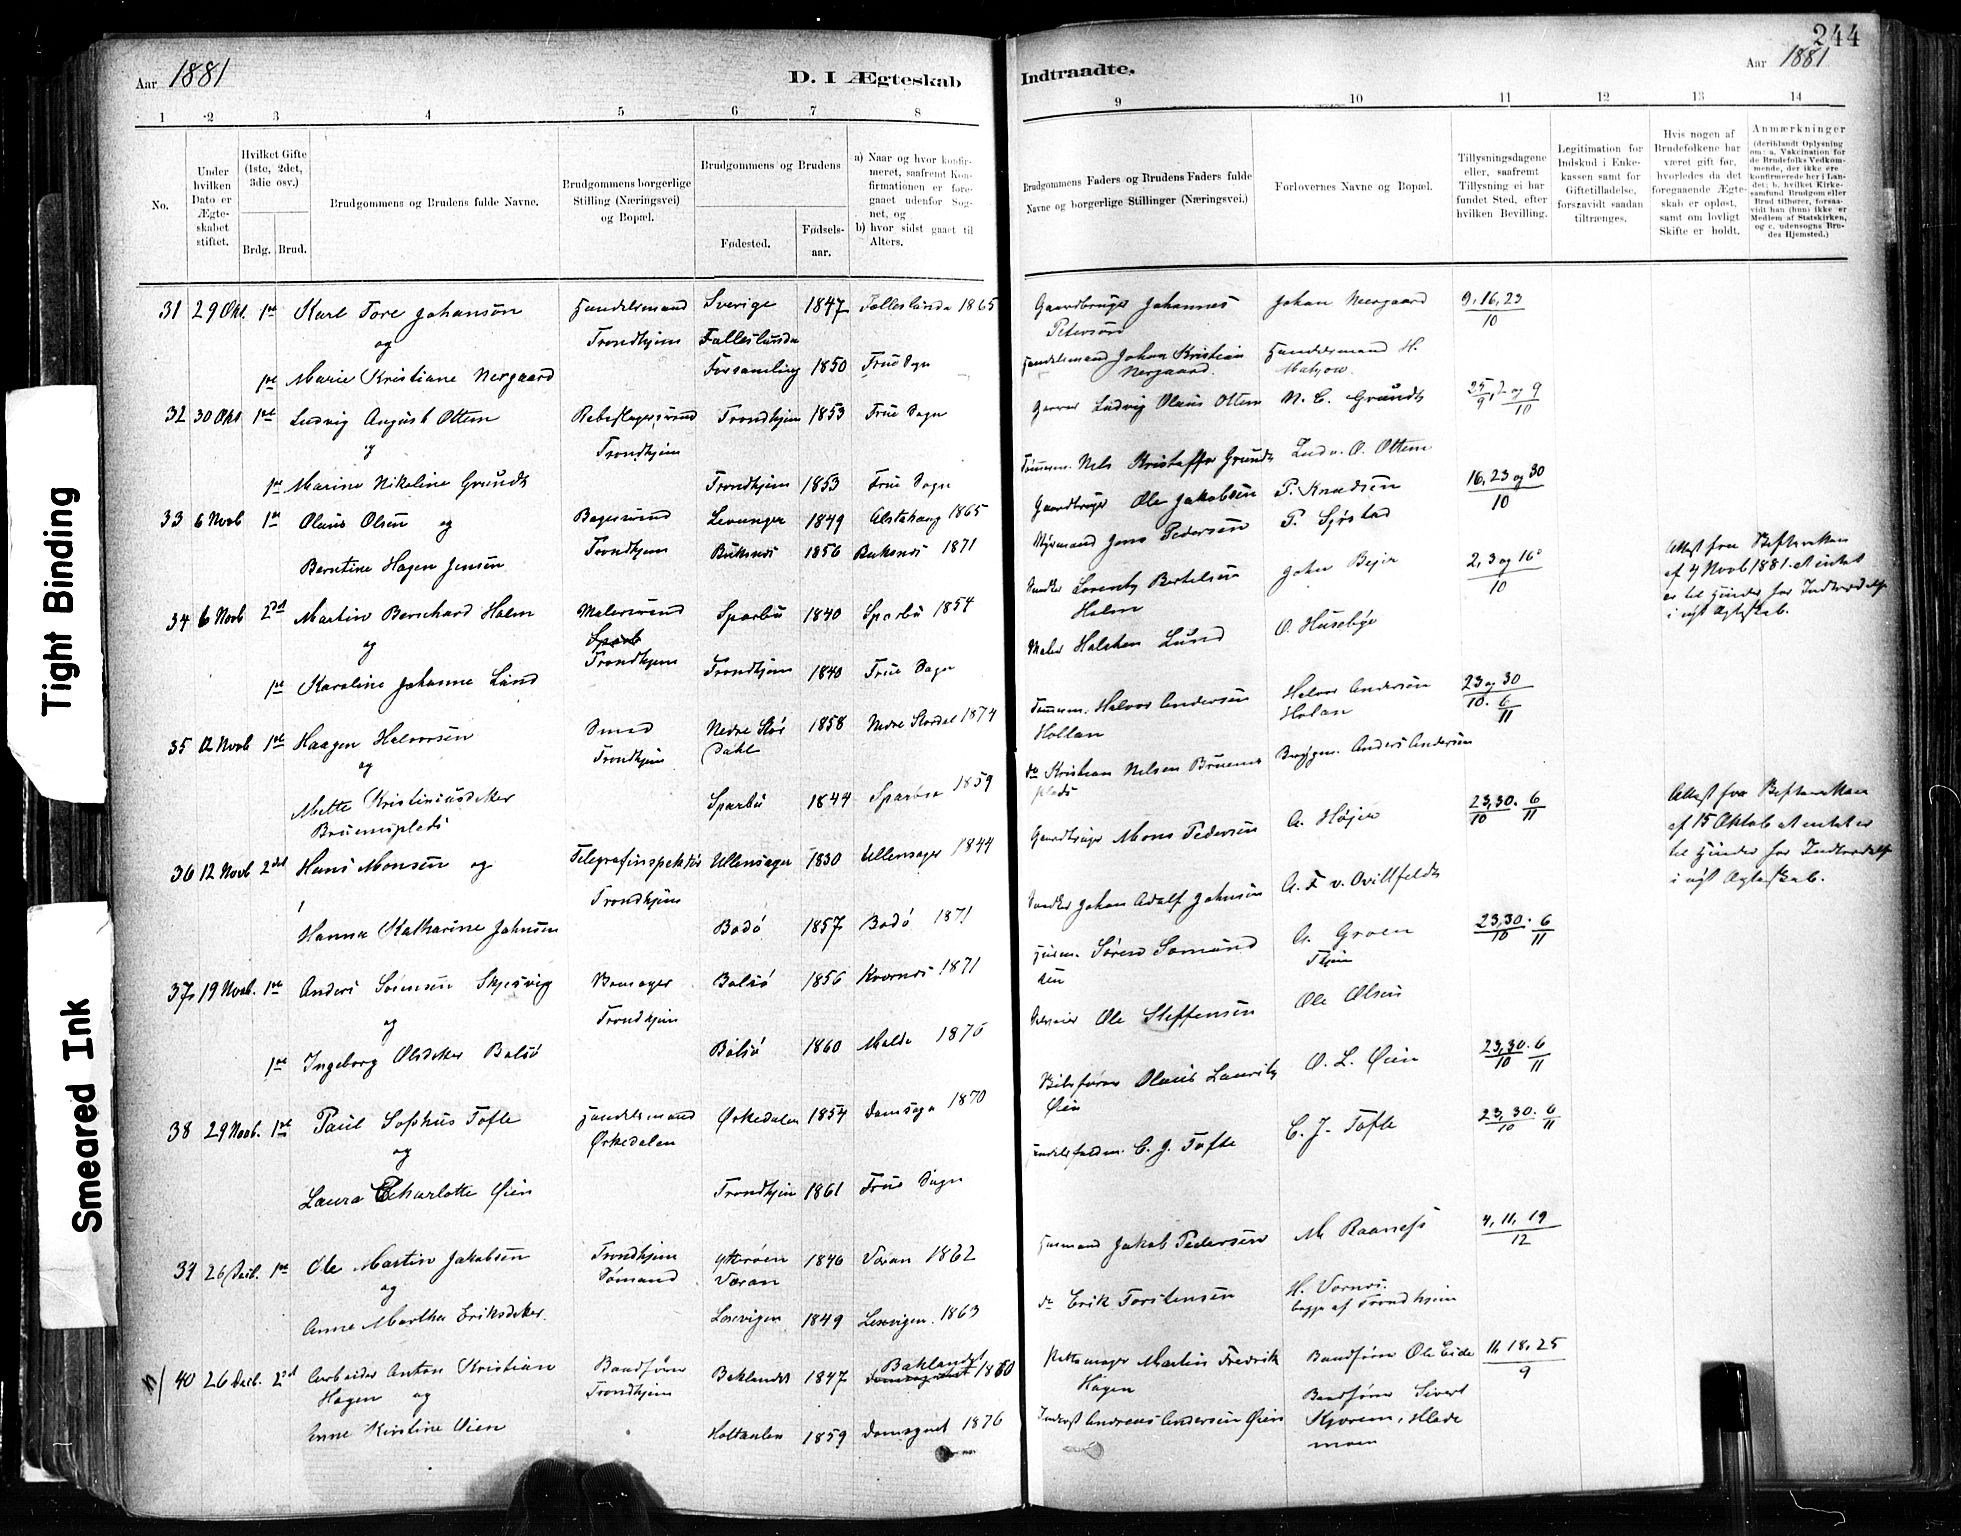 244
Aar 1881
D. I Ægteskab
Indtraadte.
Aar 1881
1 2 3 4 5 6 7 8
9 10 11 12 13 14
No.
Under hvilken Dato er Ægteskabet stiftet.
Hvilket Gifte (1ste, 2det, 3die osv.)
Brdg. Brud.
Brudgommens og Brudens fulde Navne.
Brudgommens borgerlige Stilling (Næringsvei) og Bopæl.
Brudgommens og Brudens
Fødested.
Fødselsaar.
a) Naar og hvor konfirmeret, saafremt Konfirmationen er foregaaet udenfor Sognet, og
b) hvor sidst gaaet til Alters.
Brudgommens Faders og Brudens Faders fulde Navne og borgerlige Stillinger (Næringsvei.)
Forlovernes Navne og Bopæl.
Tillysningsdagene eller, saafremt Tillysning ei har fundet Sted, efter hvilken Bevilling.
Legitimation for Indskud i Enkekassen samt for Giftetilladelse, forsaavidt saadan tiltrænges.
Hvis nogen af Brudefolkene har været gift før, hvorledes da det foregaaende Ægteskab er opløst, samt om lovligt Skifte er holdt.
Anmærkninger (deriblandt Oplysning om: a. Vakcination for de Brudefolks Vedkommende, der ikke ere konfirmerede her i Landet; b. hvilket Kirkesamfund Brudgom eller Brud tilhører, forsaavidt han (hun) ikke er Medlem af Statskirken, og c. udensogns Brudes Hjemsted.)
31 29 Okt. 1ste Karl Tore Johanson Handelsmand Sverige 1847 Falleslunda 1865 Gaardbruger Johannes Johan Nergaard 9, 16, 23
og Trondhjem Falleslunda Peterson 10
1ste Marie Kristiane Nergaard Forsamling 1850 Frue Sogn Handelsmand Johan Kristian Handelsmand H.
Nergaard.
32 30 Okt 1ste Ludvig August Ottem Rebslagersvend Trondhjem 1853 Frue Sogn Garver Ludvig Olaus Ottem N. C. Grundt 25/9, 2 og 9/10
og Trondhjem
1ste Marine Nikoline Grundt Trondhjem 1853 Frue Sogn Tømmerm. Nels Kristoffer Grundt Ludv. O. Ottem
33 6 Novb 1ste Olaus Olsen og Bagersvend Levanger 1849 Alstahaug 1865 Gaardbruger Ole Jakobsen P. Knudsen 16, 23 og 30
Trondhjem 10
Berntine Hagen Jensen Buksnes 1856 Buksnes 1871 Styrmand Jens Pedersen P. Sjøstad
34 6 Novb 2det Martin Bernhard Holm Malersvend Sparbu 1840 Sparbu 1854 Snedker Lorents Bertelsen John Bejer 2, 3 og 16
og Sparb Holm 10
Trondhjem
1ste Karoline Johanne Lund Trondhjem 1840 Frue Sogn Maler Halsten Lund O. Huseby
Attest fra Skifteretten
af 4 Novb 1881 at intet
er til Hinder for Indtrædelse
i nyt Ægteskab.
35 12 Novb 1ste Haagen Halvorsen Smed Nedre Stør 1858 Nedre Stordal 1874 Tømmerm. Halvor Andersen Halvor Andersen 23 og 30
og Trondhjem dahl Hollan Holan 10. 6/11
Mette Kristiansdatter Sparbu 1844 Sparbu 1859 do Kristian Nelsen Bruems Bryggem. Anders Andersen
Bruemsplads plads
36 12 Novb 2det Hans Monsen og Telegrafinspektør Ullensager 1830 Ullensager 1844 Gaardbruger Mons Pedersen A. Høyer 23, 30/10. 6/11
Trondhjem
Hanna Katharine Johnsen Bodø 1857 Bodø 1871 Snedker Johan Adolf Johnsen
Attest fra Skifteretten
af 15 Oktob at intet er
til Hinder for Indtrædelse
i nyt Ægteskab.
37 19 Novb. 1ste Anders Sørensen Skjesvig Trondhjem Bolsø 1856 Kvernes 1871 Søren Somund A. Groen 23, 30/10. 6/11
og sen
1ste Ingeborg Olsdatter Bolsø Bolsø 1860 Molde 1876 Selveier Ole Steffensen Ole Olsen
38 29 Novb. 1ste Paul Sophus Tofte Handelsmand Ørkedalen 1854 Domsogn 1870 23, 30/10. 6/11
og Ørkedalen Olaus Laurits O. L. Øien
Øien
Laura Charlotte Øien Trondhjem 1861 Frue Sogn C. J. Tofte C. J. Tofte 23, 30/10. 6/11
39 26 Decb. 1ste Ole Martin Jakobsen Trondhjem Ytterøen 1846 Væran 1862 Husmand Jakob Pedersen M. Raanes 4, 11, 19
og Sømand Væran 12
Anne Martha Eriksdatter Lexvigen 1849 Lexvigen. 1863 do Erik Torstensen H. Vornes.
begge af Trondhjem
40 26 Decb. 2det Arbeider Anton Kristian Baadfører Baklandet 1847 Baklandet 1860 Martin Fredrik Baadfører Ole Eide 11, 18, 25
Hagen og Trondhjem Hagen 9
Anne Kirstine Øien Holtaalen 1859 Domsognet 1876 Inderst Andreas Andersen Øien Baadfører Sivert
Kjørem, Hlade
moen
Tight Binding
Smeared Ink